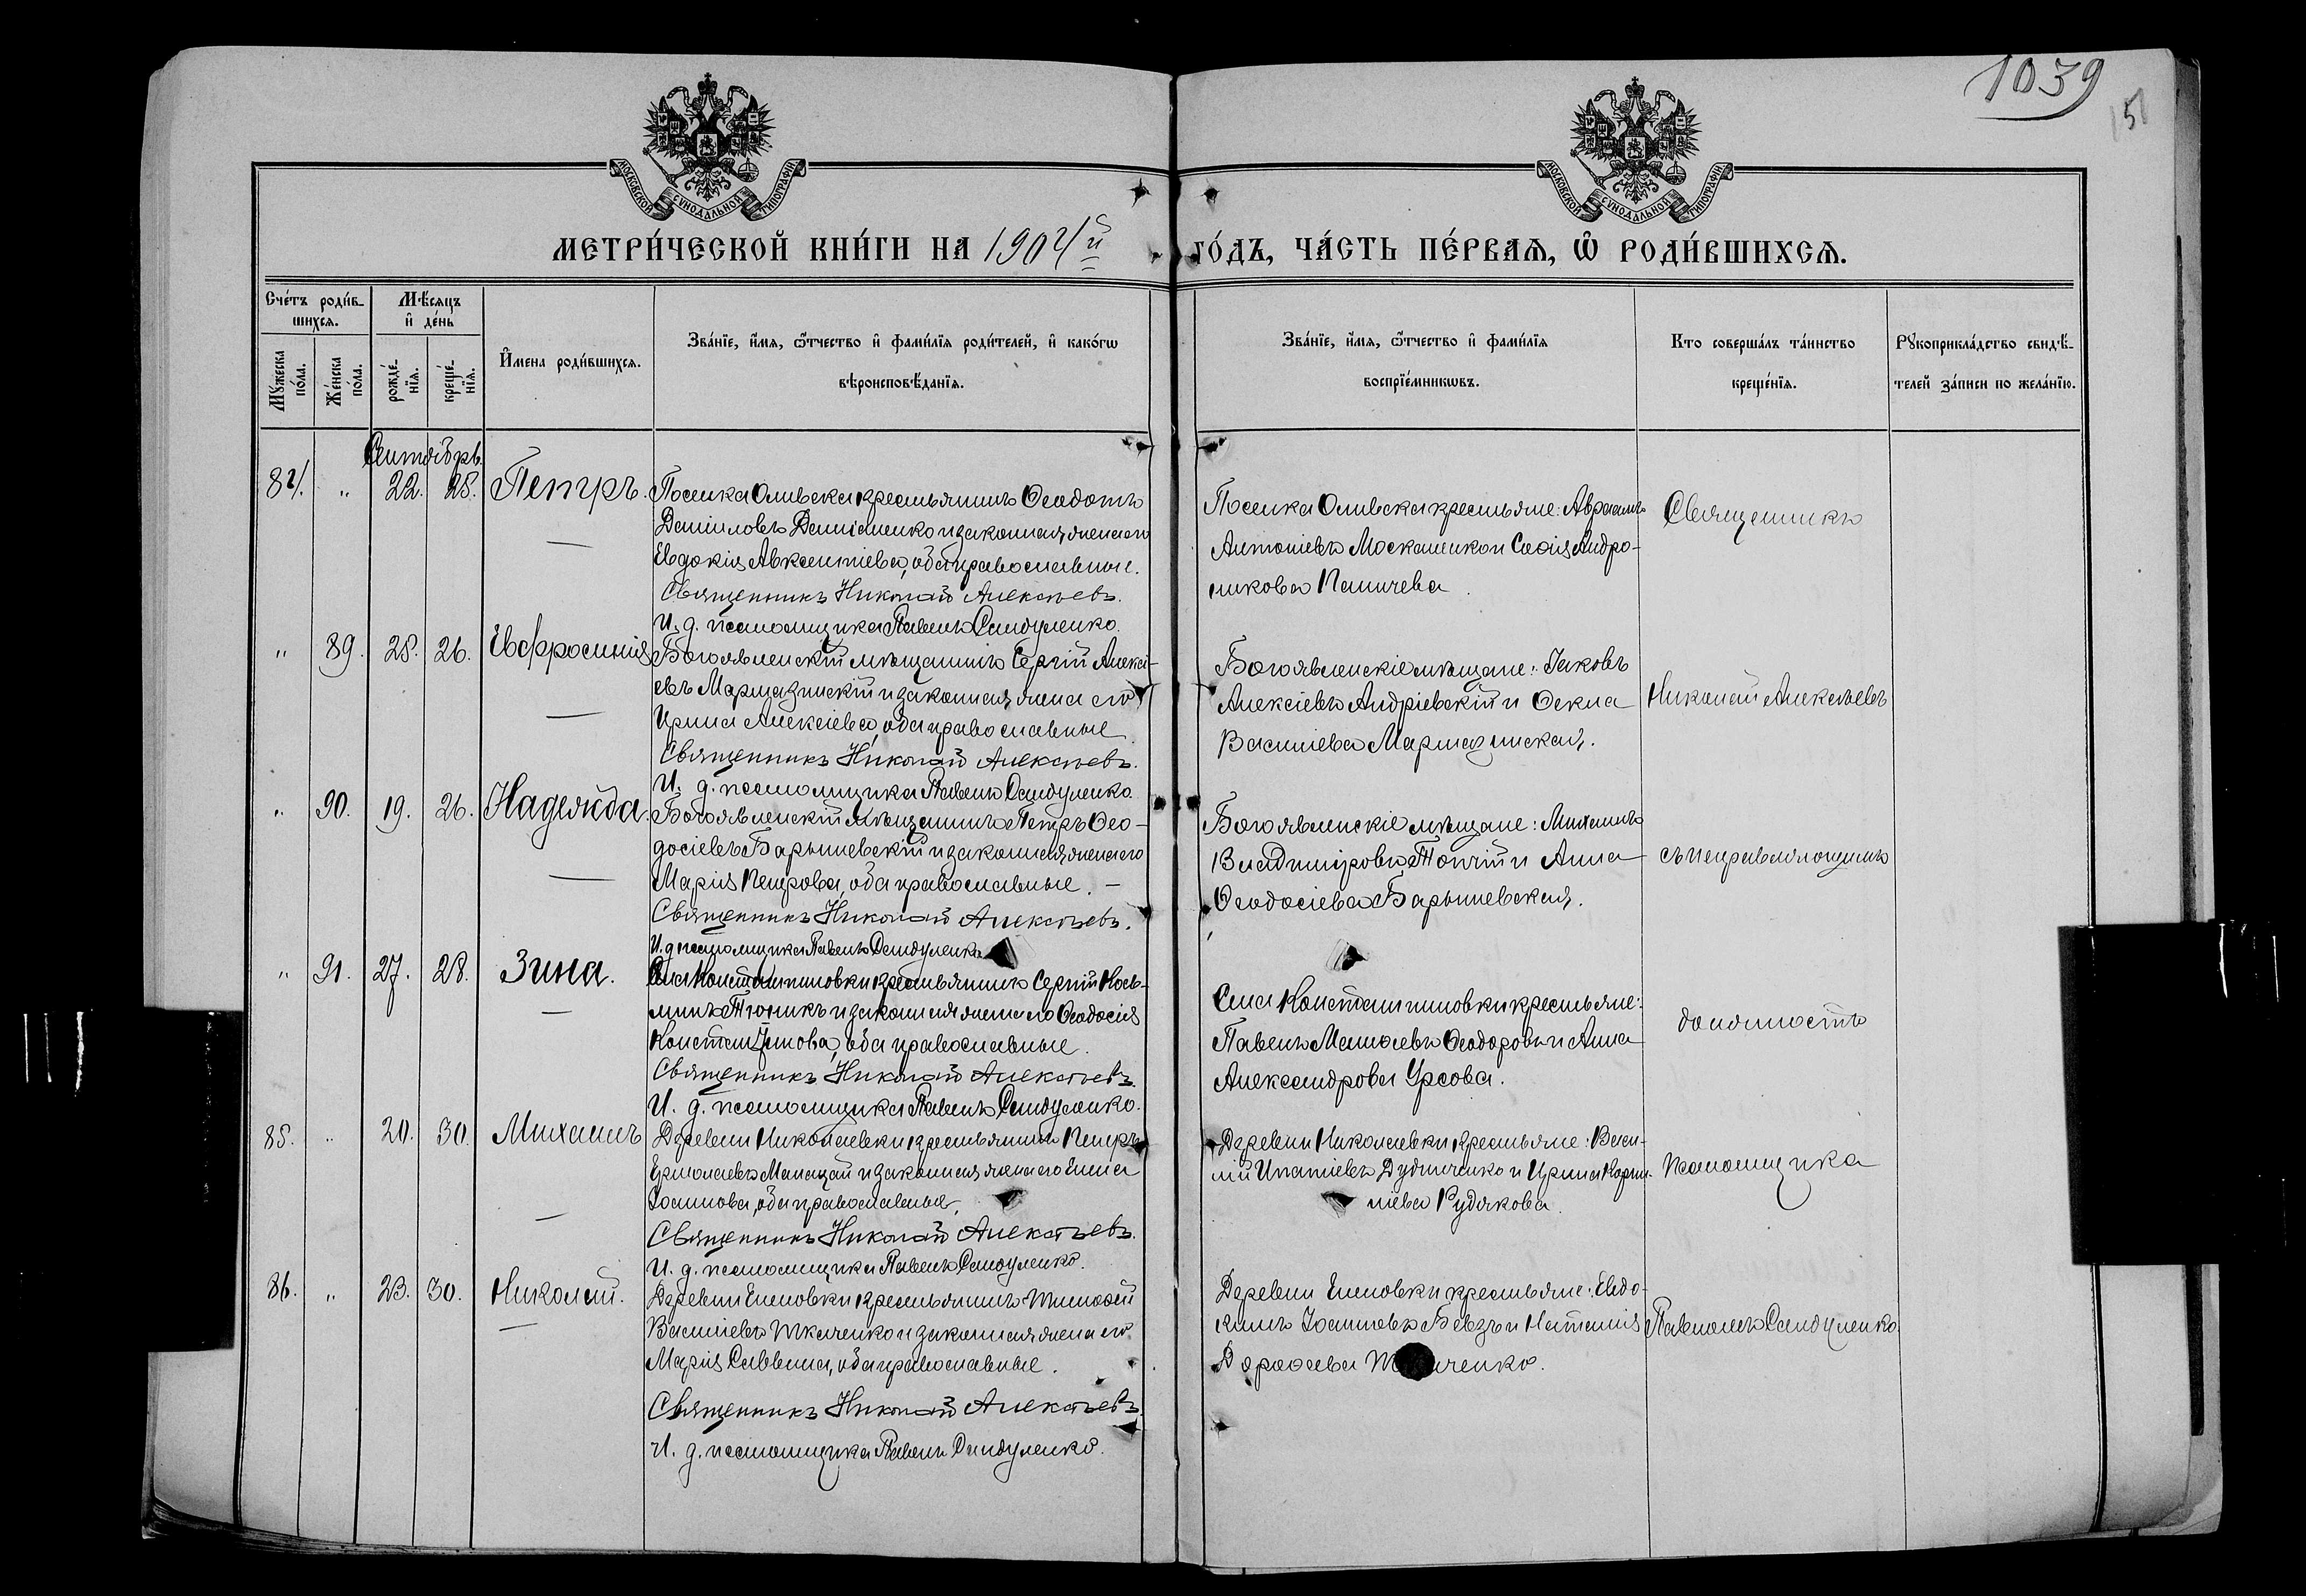 1039
151
МОСКОВСКОЙ СУНОДАЛЬНОЙ ТИПОГРАФІИ
МОСКОВСКОЙ СУНОДАЛЬНОЙ ТИПОГРАФІИ
МЕТРИ́ЧЕСКОЙ КНИ́ГИ НА 1904й
ГО́ДЪ, ЧА́СТЬ ПЕ́РВАѦ, Ѽ РОДИ́ВШИХСѦ.
Сче́тъ роди́в-
шихсѧ.
Мѣ́сѧцъ
и҆ де́нь
Мꙋ́жеска
по́ла.
Же́нска
по́ла.
рожде́-
нїѧ.
креще́-
нїѧ.
И҆мена роди́вшихсѧ.
Зва́нїе, и҆́мѧ, ѻ҆́тчество и҆ фами́лїѧ роди́телей, и҆ како́гѡ
вѣроисповѣ́данїѧ.
Зва́нїе, и҆́мѧ, ѻ҆́тчество и҆ фами́лїѧ
воспрїе́мникѡвъ.
Кто соверша́лъ та́инство
креще́нїѧ.
Рꙋкоприкла́дство свидѣ́-
телей за́писи по жела́нїю.
Сентябрь.
84. " 22. 25. Петръ.
Поселка Ольвска крестьянинъ Ѳеодотъ
Даніиловъ Даміаненко и законная жена его
Евдокія Авксентіева, оба православные.
Священникъ Николай Алексѣевъ.
И. д. псаломщика Павелъ Сандуленко.
Поселка Ольвска крестьяне: Авраамъ
Антоніевъ Москаленко и Софія Андро-
никова Паничева
Священникъ
" 89. 25. 26. Евфросинія
Богоявленскій мѣщанинъ Сергій Алексі-
евъ Маришзинскій и законная жена его
Ирина Алексіева, оба православные
Священникъ Николай Алексѣевъ.
И. д. псаломщика Павелъ Сандуленко.
Богоявленскіе мѣщане: Іаковъ
Алексіевъ Андріевскій и Ѳекла
Василіева
Николай Алексѣевъ
" 90. 19. 26. Надежда.
Богоявленскій мѣщанинъ Петръ Ѳео-
досіевъ Барышевскій и законная жена его
Марія Петрова, оба православные. —
Священникъ Николай Алексѣевъ.
И. д. псаломщика Павелъ Сандуленко
Богоявленскіе мѣщане: Михаилъ
Владиміровъ Топчій и Анна
Ѳеодосіева Барышевская.
съ исправляющимъ
" 91. 27. 28. Зина.
Села Константиновки крестьянинъ Сергій Кось-
минъ Тютикъ и законная жена его Ѳеодосія
Константинова, оба православные.
Священникъ Николай Алексѣевъ.
И. д. псаломщика Павелъ Сандуленко.
Села Константиновки крестьяне:
Павелъ Ѳеодоровъ и Анна
Александрова Урсова.
должность
85. " 20. 30. Михаилъ
Деревни Николаевки крестьянинъ Петръ
Ермолаевъ Малацай и законная жена его Елена
Іоаннова, оба православные.
Священникъ Николай Алексѣевъ.
И. д. псаломщика Павелъ Сандуленко.
Деревни Николаевки крестьяне: Васи-
лій Ипатіевъ Дудниченко и Ирина Корни-
ліева Рудякова.
псаломщика
86. " 23. 30. Николай.
Деревни Еленовки крестьянинъ Тимоѳей
Василіевъ Ткаченко и законная жена его
Марія Саввина, оба православные.
Священникъ Николай Алексѣевъ.
И. д. псаломщика Павелъ Сандуленко.
Деревни Еленовки крестьяне: Евдо-
кимъ Іоанновъ Бевзъ и Наталія
Дороѳеева Ткаченко.
Павломъ Сандуленко.